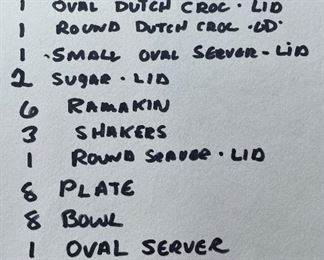 1 OVAL DUTCH CROC. LID
1 ROUND DUTCH CROC.
1 SMALL OVAL SERVER-LID
2 SUGAR. LID
6 RAMAKIN
3 SHAKERS
1 ROUND SERVER. LID
8 PLATE
8 BOWL
1 OVAL SERVER